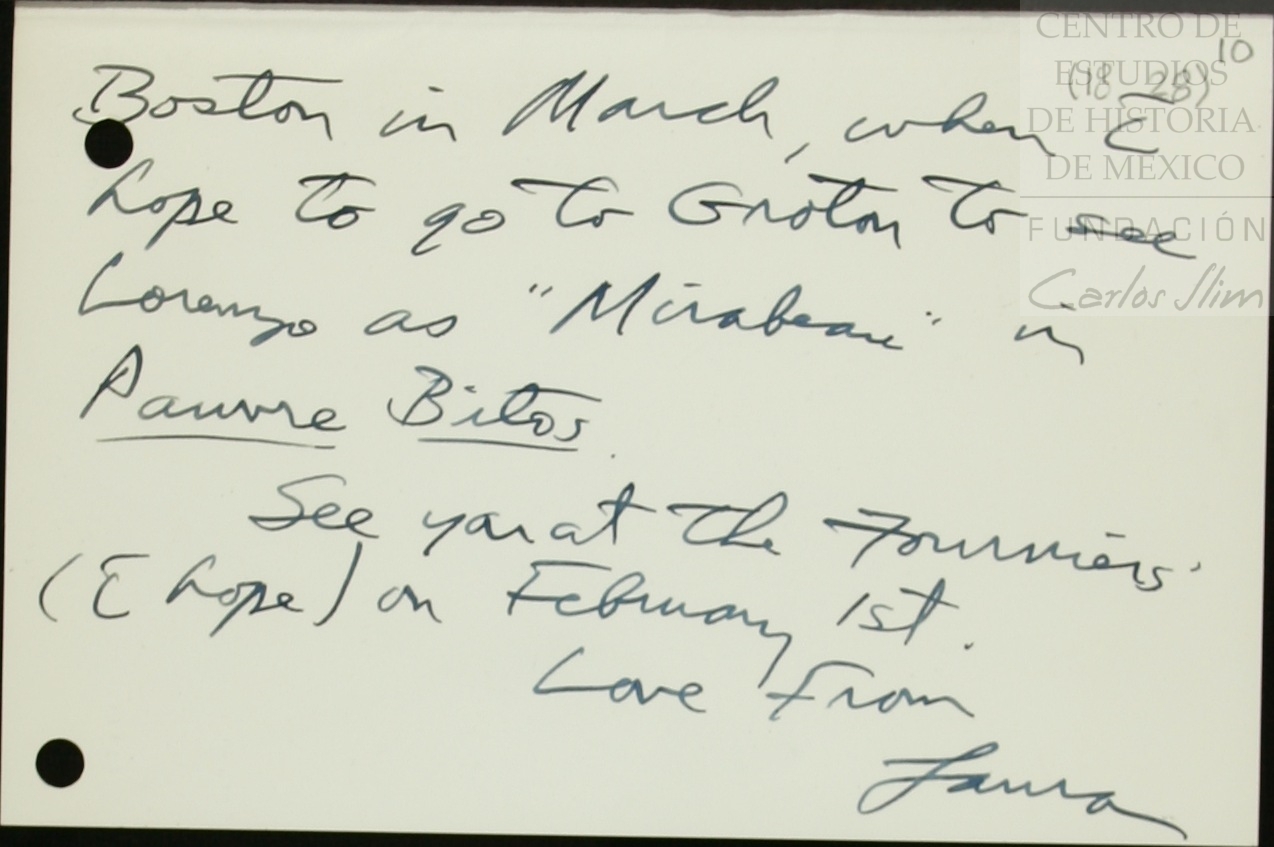 CENTRO DE
ESTUDIOS
DE HISTORIA
DE MÉXICO
FUNDACIÓN
Carlos Slim
10
(18-28)
Boston in March, when I
hope to go to Groton to see
Lorenzo as "Mirabeau" in
Pauvre Bitos.
See you at the Fourniers'
(I hope) on February 1st.
Love from
Laura